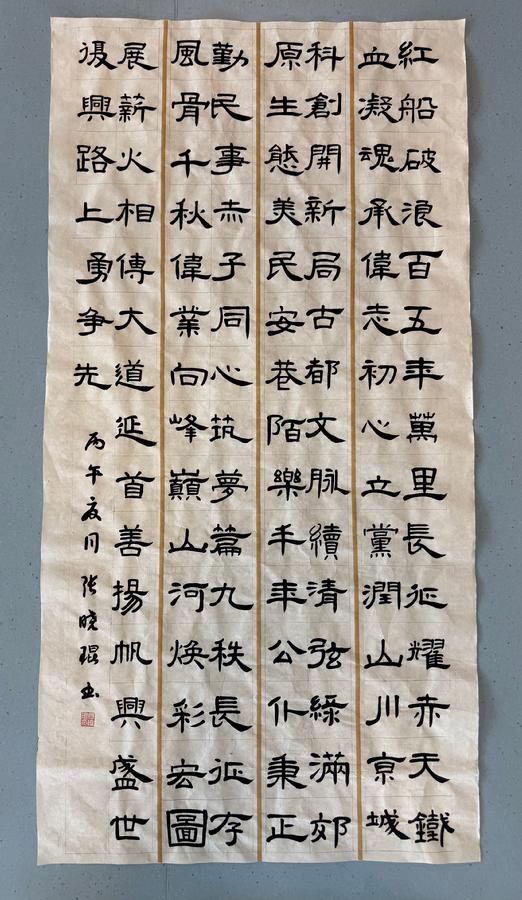 紅船破浪百五年萬里長征耀赤天鐵
血凝魂承偉志初心立黨潤山川京城
科創開新局古都文脉續清弦綠滿郊
原生態美民安巷陌樂千年公仆秉正
勤民事赤子同心筑夢篇九秩長征存
風骨千秋偉業向峰巔山河煥彩宏圖
展薪火相傳大道延首善揚帆興盛世
復興路上勇争先
丙午夏月 张晓琨书